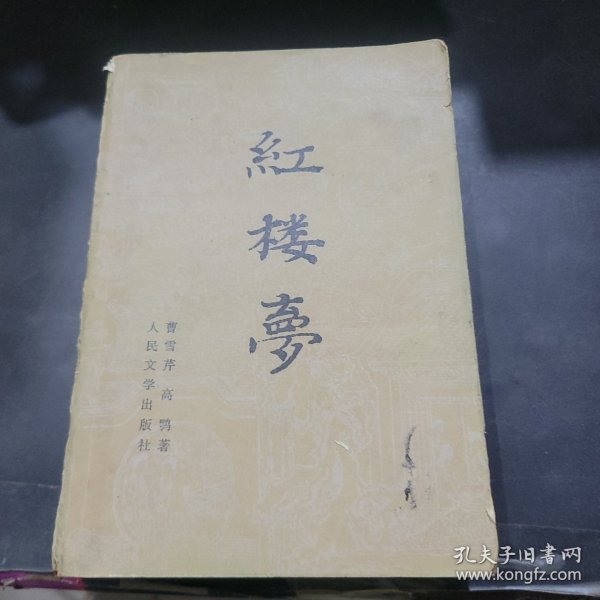 紅楼夢
曹雪芹 高鹗著
人民文学出版社
孔夫子旧书网
www.kongfz.com